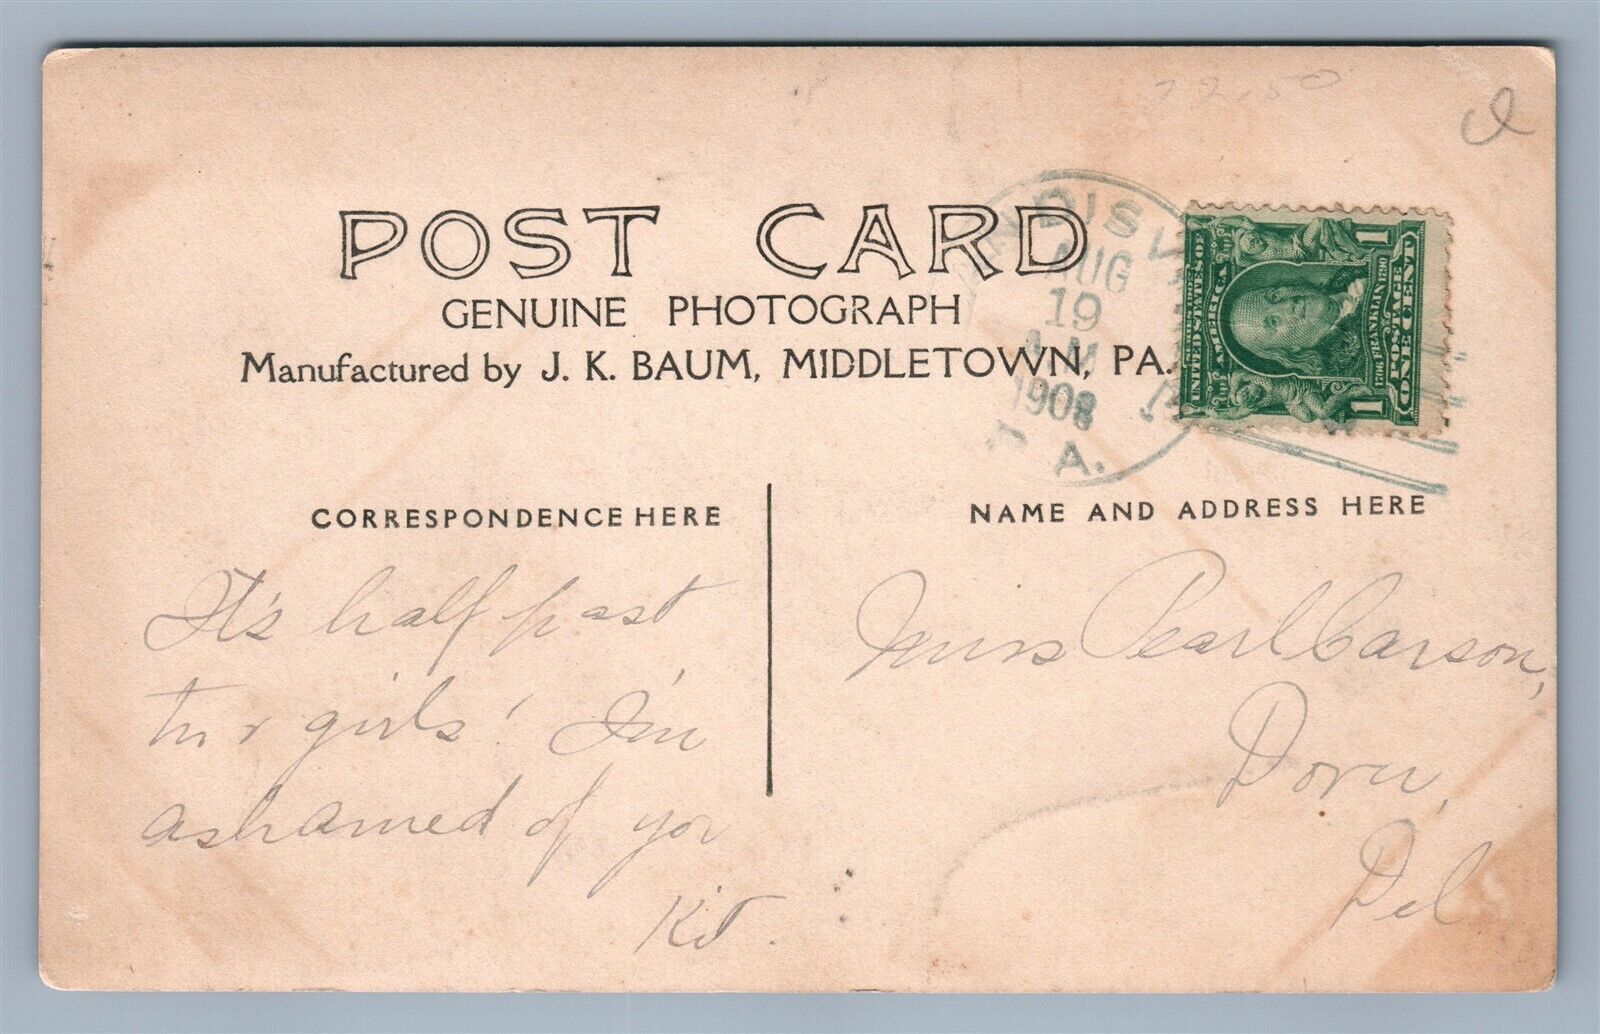 22.50
POST CARD
GENUINE PHOTOGRAPH
Manufactured by J. K. BAUM, MIDDLETOWN, PA.
AUG
19
AM
1908
A.
1 1
SERIES 1902
UNITED STATES OF
AMERICA
1706 FRANKLIN 1790
POSTAGE
ONE CENT
CORRESPONDENCE HERE
NAME AND ADDRESS HERE
It's half past
girls! I'm
ashamed of yor
Kit.
Miss Pearl Carson,
Del